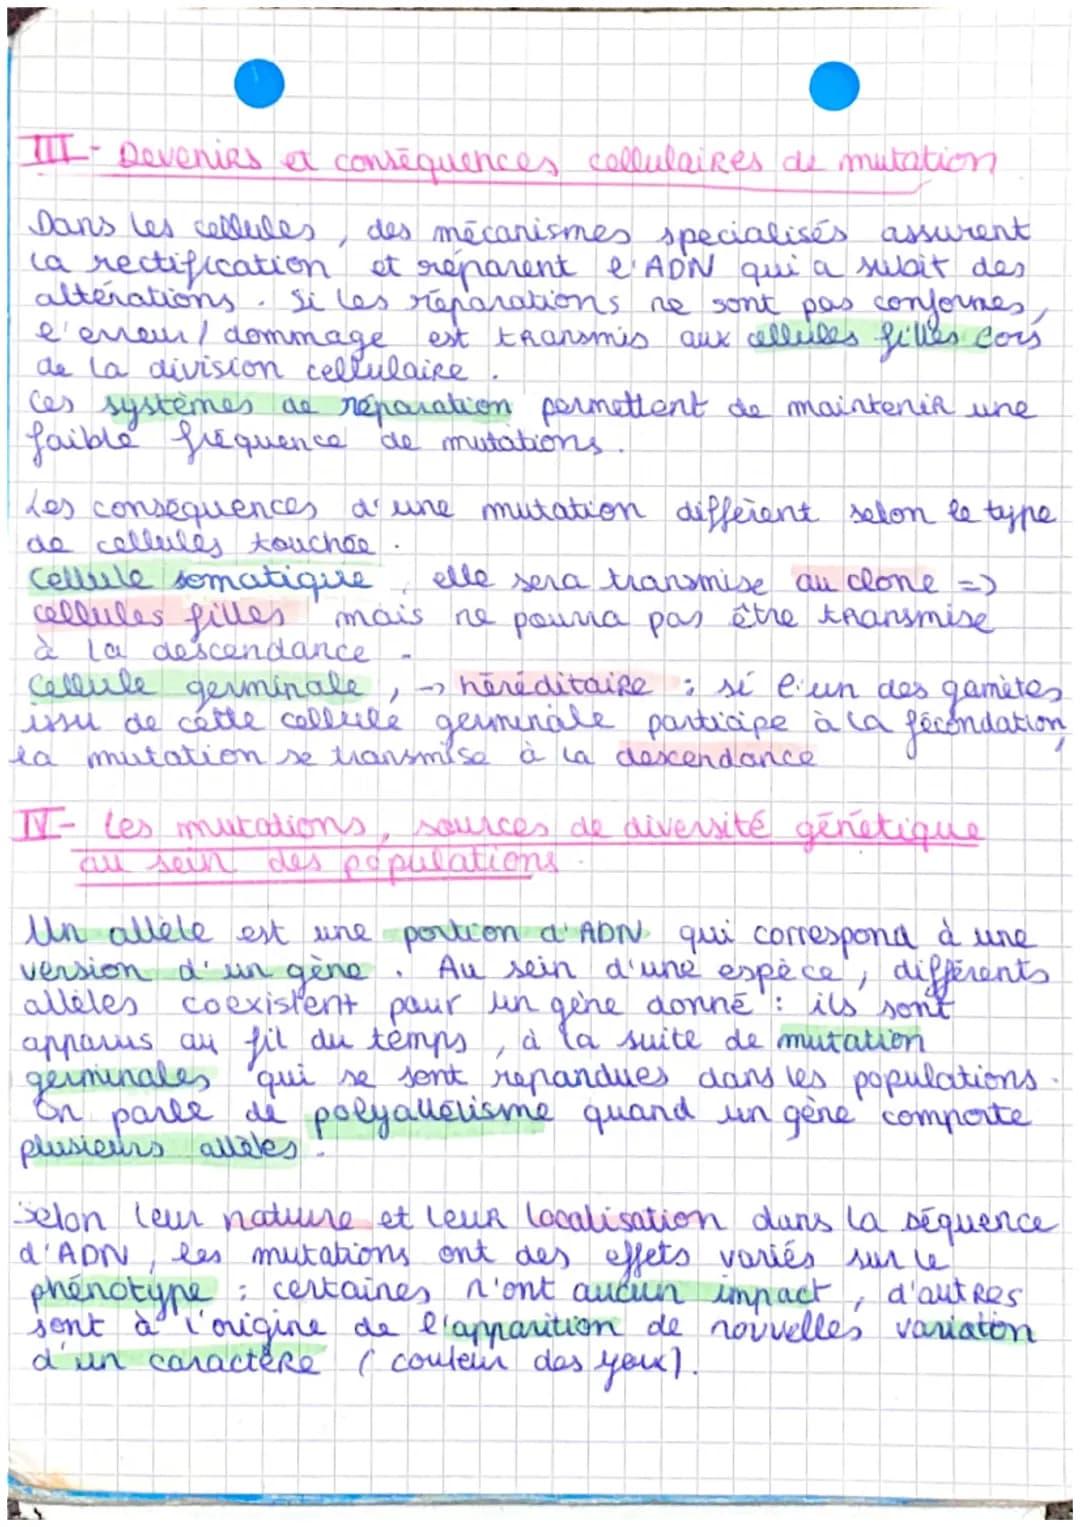 III - Devenirs et conséquences cellulaires de mutation
Dans les cellules, des mécanismes specialisés assurent
la rectification et réparent l'ADN qui a subit des
altérations. Si les réparations ne sont pas conformes,
l'erreur / dommage est transmis aux cellules filles lors
de la division cellulaire.
Ces systèmes de réparation permettent de maintenir une
faible fréquence de mutations.
Les conséquences d'une mutation diffèrent selon le type
de cellules touchée.
Cellule somatique, elle sera transmise au clone =>
cellules filles mais ne pourra pas être transmise
à la descendance.
Cellule germinale, → héréditaire : si l'un des gamètes
issu de cette cellule germinale participe à la fécondation,
la mutation se transmise à la descendance
IV - Les mutations, sources de diversité génétique
au sein des populations.
Un allèle est une portion d'ADN qui correspond à une
version d'un gène. Au sein d'une espèce, différents
allèles coexistent pour un gène donné : ils sont
apparus au fil du temps, à la suite de mutation
germinales qui se sont repandues dans les populations.
On parle de polyallélisme quand un gène comporte
plusieurs allèles.
Selon leur nature et leur localisation dans la séquence
d'ADN, les mutations ont des effets variés sur le
phénotype : certaines n'ont aucun impact, d'autres
sont à l'origine de l'apparition de nouvelles variation
d'un caractère (couleur des yeux).